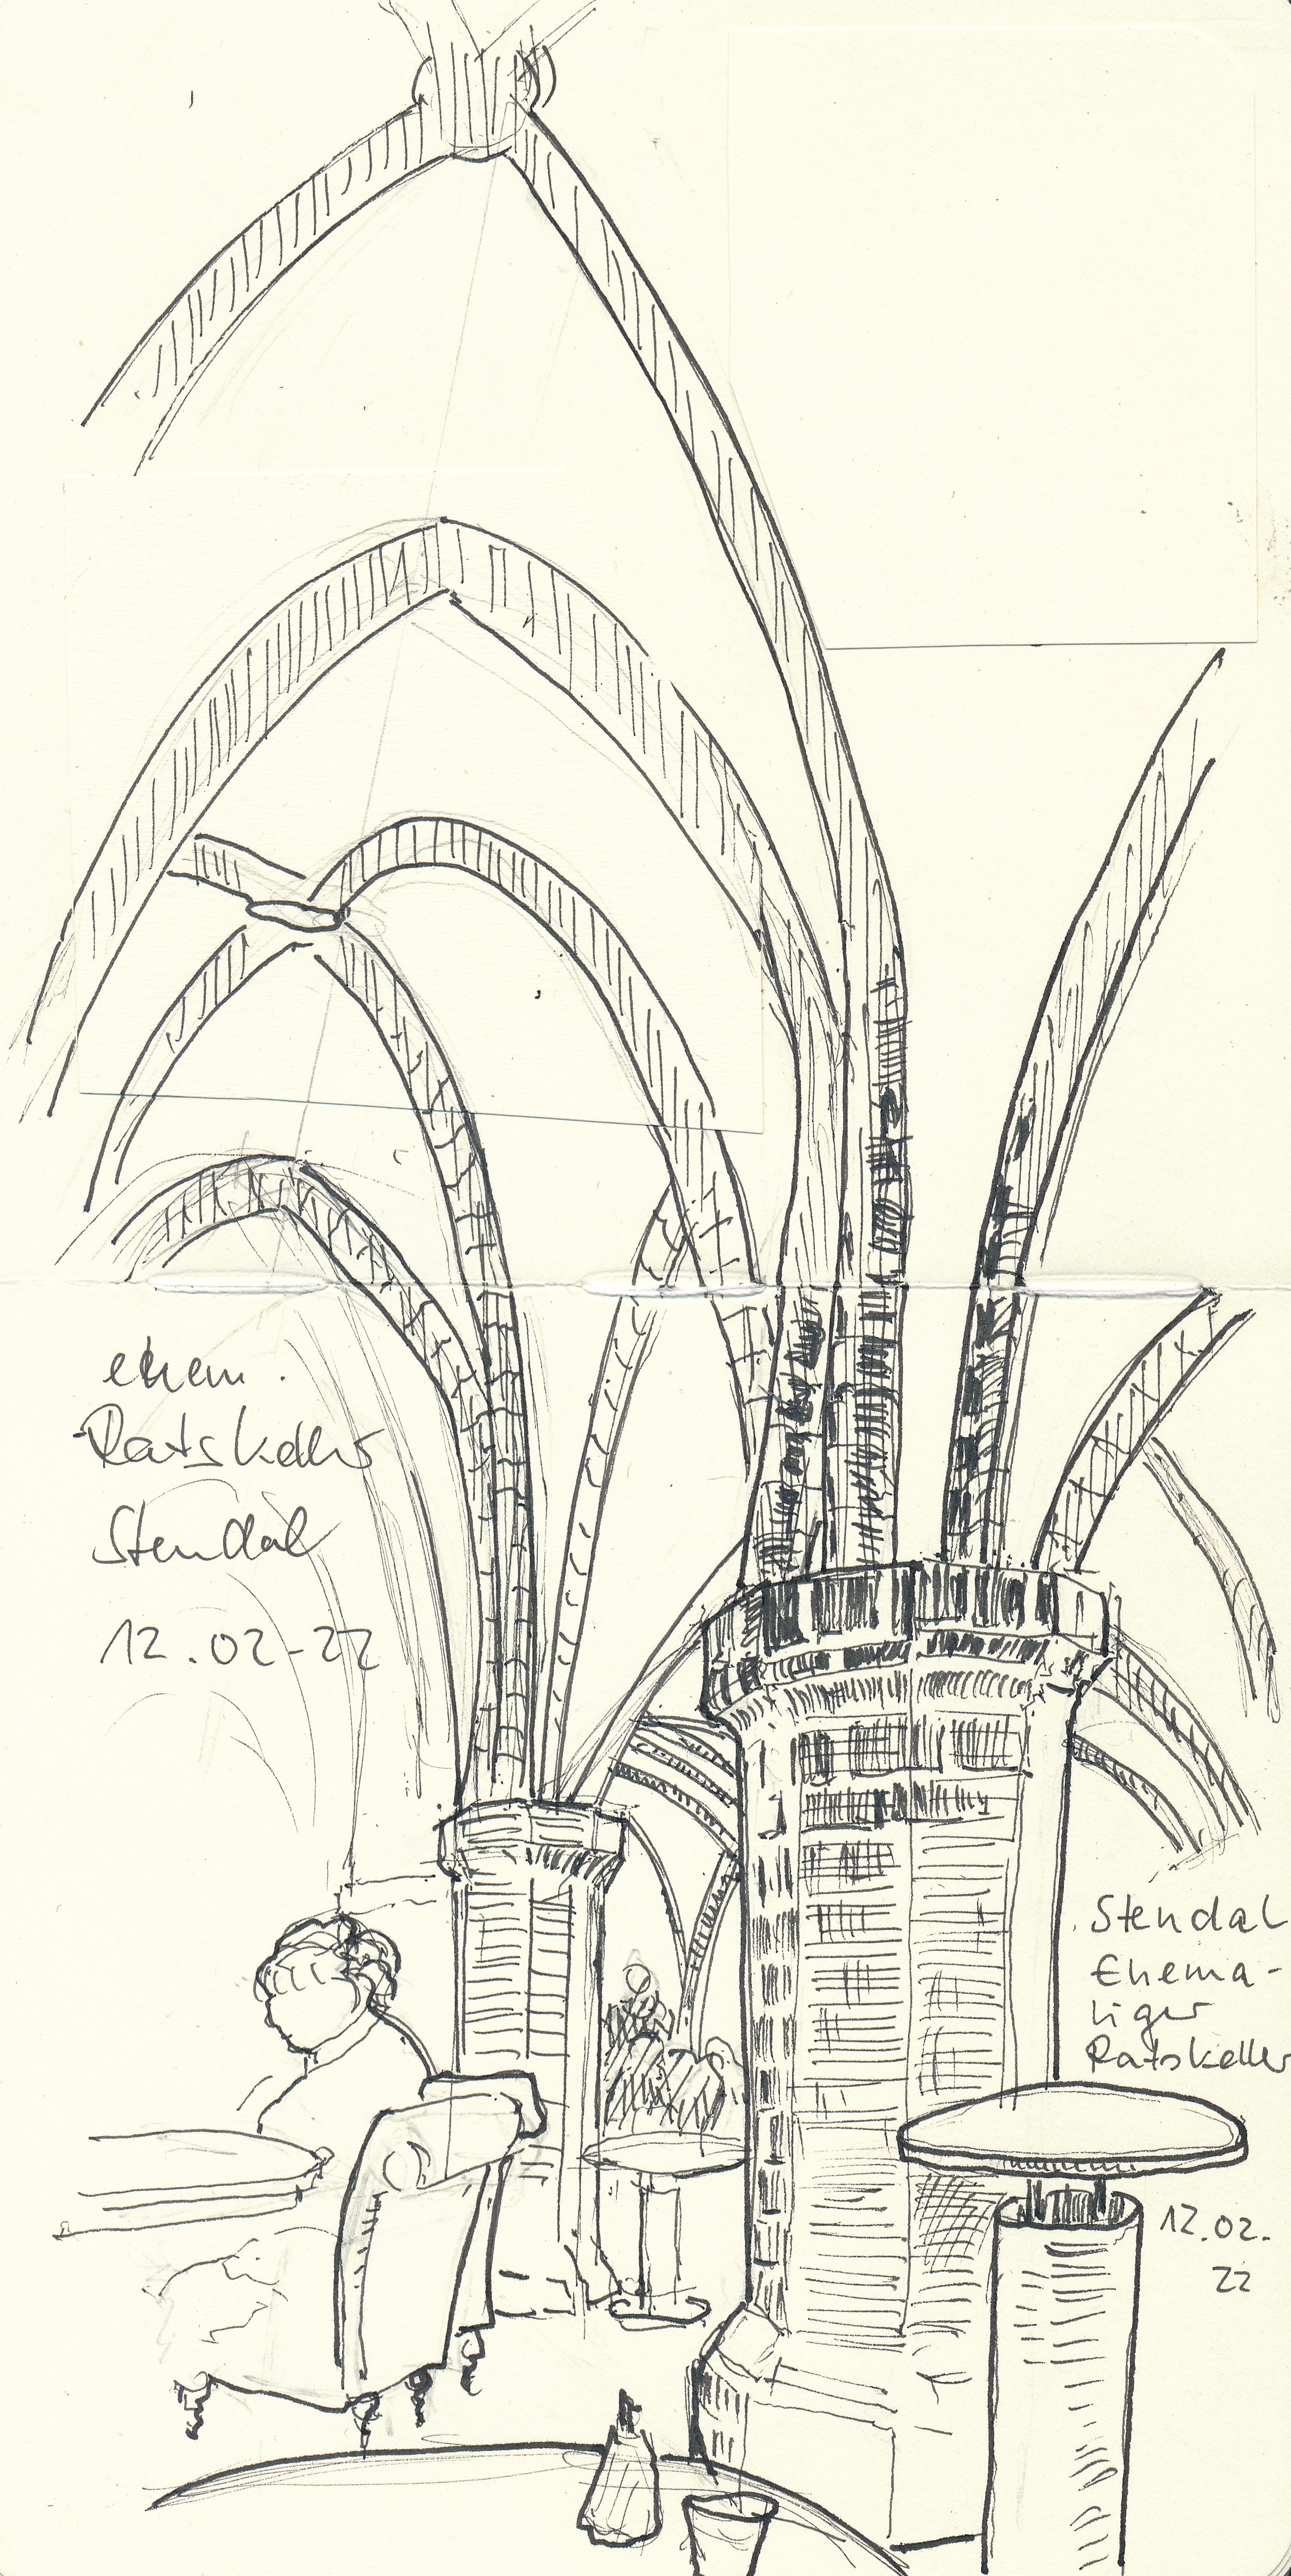 ehem.
Ratskeller
Stendal
12.02-22
Stendal
Ehema-
liger
Ratskeller
12.02.
22